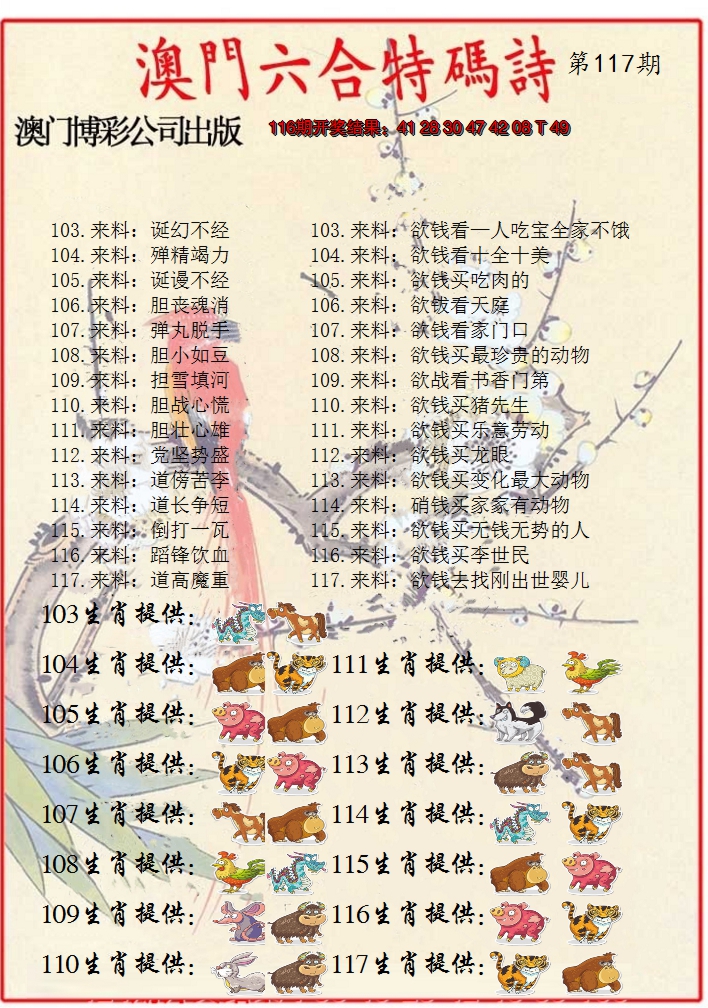 澳門六合特碼詩 第117期
澳门博彩公司出版 116期开奖结果：41 28 30 47 42 08 T 49
103.来料：诞幻不经 103.来料：欲钱看一人吃宝全家不饿
104.来料：殚精竭力 104.来料：欲钱看十全十美
105.来料：诞谩不经 105.来料：欲钱买吃肉的
106.来料：胆丧魂消 106.来料：欲钱看天庭
107.来料：弹丸脱手 107.来料：欲钱看家门口
108.来料：胆小如豆 108.来料：欲钱买最珍贵的动物
109.来料：担雪填河 109.来料：欲战看书香门第
110.来料：胆战心慌 110.来料：欲钱买猪先生
111.来料：胆壮心雄 111.来料：欲钱买乐意劳动
112.来料：党坚势盛 112.来料：欲钱买龙眼
113.来料：道傍苦李 113.来料：欲钱买变化最大动物
114.来料：道长争短 114.来料：硝钱买家家有动物
115.来料：倒打一瓦 115.来料：欲钱买无钱无势的人
116.来料：蹈锋饮血 116.来料：欲钱买李世民
117.来料：道高魔重 117.来料：欲钱去找刚出世婴儿
103生肖提供：
104生肖提供： 111生肖提供：
105生肖提供： 112生肖提供：
106生肖提供： 113生肖提供：
107生肖提供： 114生肖提供：
108生肖提供： 115生肖提供：
109生肖提供： 116生肖提供：
110生肖提供： 117生肖提供：